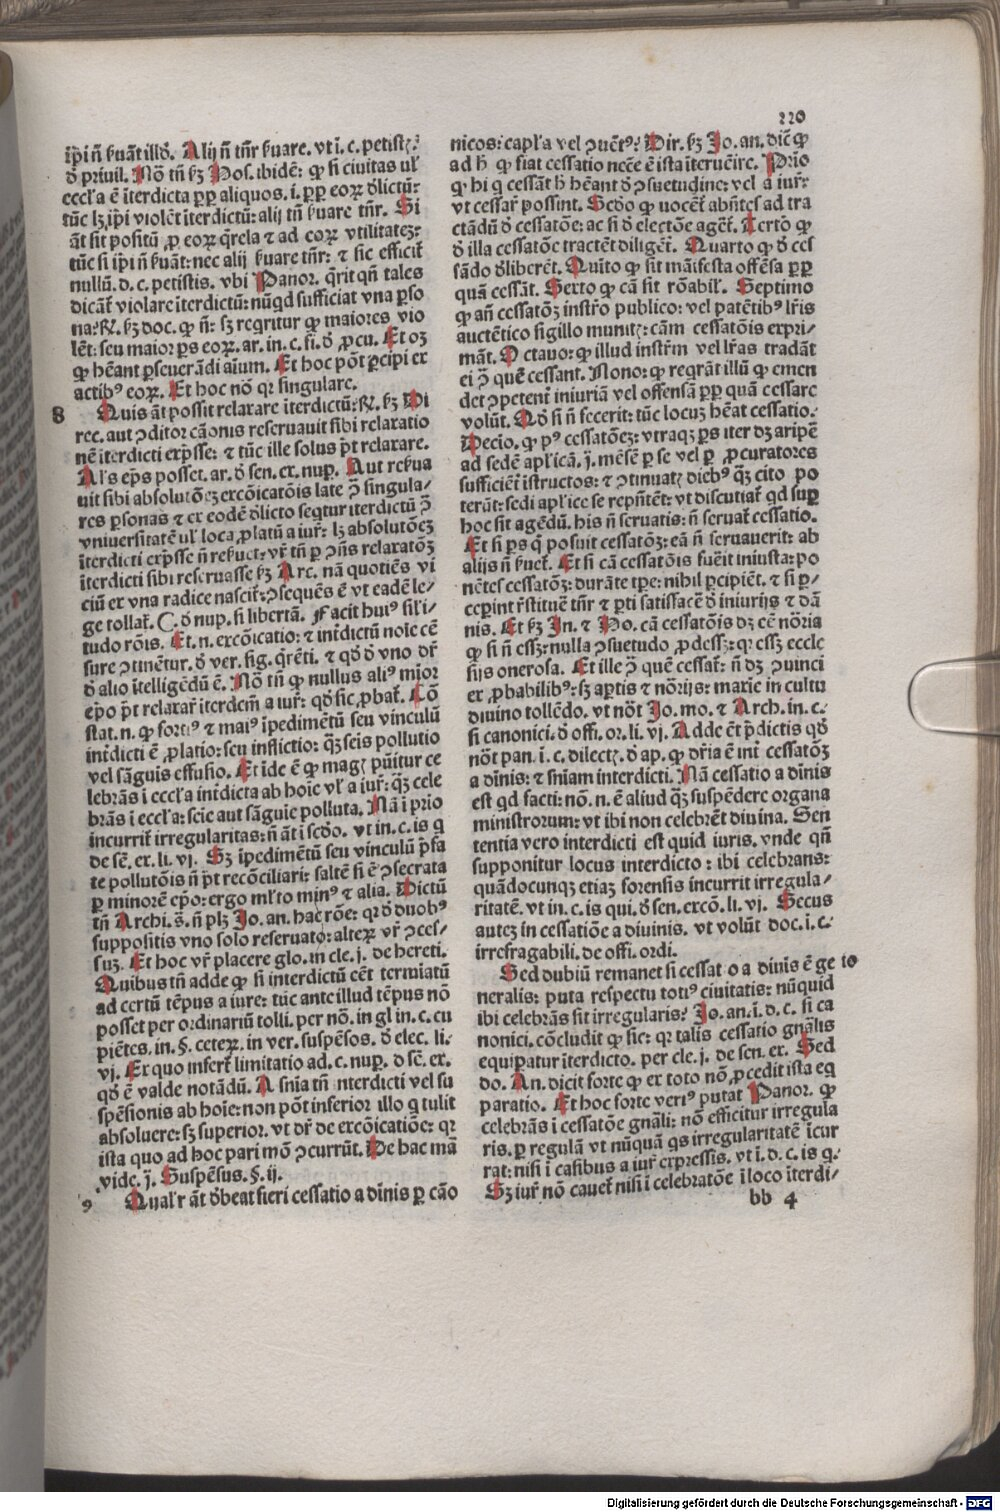 220
ip̄i ñ ẜuāt illđ. Alij ñ tn̄r ẜuare. vt ī. c. petistꝭ.
đ priuil. Nō tn̄ ẜꝫ Hos. ibidē: ꝙ si ciuitas ul̓
eccl̓a ē īterdicta ꝓꝑ aliquos. i. ꝓꝑ eoꝝ đlictū:
tūc lꝫ ip̄i violēt īterdictū: alij tn̄ ẜuare tn̄r. Si
āt sit positū ꝓ eoꝝ q̄rela ⁊ ad eoꝝ vtilitatēꝫ:
tūc si ip̄i ñ ẜuāt: nec alij ẜuare tn̄r: ⁊ sic efficit̄
nullū. d. c. petistis. vbi Panor. q̄rit qn̄ tales
dicāt̄ violare īterdictū: nūqd sufficiat vna ꝑso
na: ꝶ. ẜꝫ doc. ꝙ ñ: sꝫ reqritur ꝙ maiores vio
lēt: seu maior ꝑs eoꝝ. ar. in. c. fi. đ ꝓcu. Et oꝫ
ꝙ hēant ꝑseuerādi aīum. Et hoc pōt ꝑcipi ex
actibꝰ eoꝝ. Et hoc nō qꝛ singulare.
8 Quis āt possit relaxare īterdictū: ꝶ. ẜꝫ Di
rec. aut ꝯditor cāonis reseruauit sibi relaxatio
nē īterdicti exp̄sse: ⁊ tūc ille solus p̄t relaxare.
Al̓s ep̄s posset. ar. đ sen. ex. nuꝑ. Aut reẜua
uit sibi absolutōeꝫ excōicatōis late ꝯ̄ singula-
res ꝑsonas ⁊ ex eodē đlicto seqtur īterdictū ꝯ̄
vniuersitatē ul̓ loca ꝓlatū a iur̄: lꝫ absolutōeꝫ
īterdicti exp̄sse ñ reẜuet: vr̄ tn̄ ꝑ ꝯn̄s relaxatōꝫ
īterdicti sibi reseruasse ẜꝫ Arc. nā quotiēs vi
ciū ex vna radice nascit̄: ꝯsequēs ē vt eadē le-
ge tollat̄. C. đ nup. si libertā. Facit huiꝰ sil̓i-
tudo rōis. Et. n. excōicatio: ⁊ int̄dictū noīe cē
sure ꝯtinētur. đ ver. sig. q̄rēti. ⁊ qđ đ vno dr̄
đ alio ītelligēdū ē. Nō tn̄ ꝙ nullus aliꝰ mīor
ep̄o p̄t relaxar̄ īterdcm̄ a iur̄: qđ sic ꝓbat̄. Cō
stat. n. ꝙ fortiꝰ ⁊ maiꝰ īpedimētū seu vinculū
int̄dicti ē ꝓlatio: seu inflictio: q̄ꝫ seis pollutio
vel sāguis effusio. Et īde ē ꝙ magꝭ pūitur ce
lebrās ī eccl̓a int̄dicta ab hoīe vl̓ a iur̄: q̄ꝫ cele
brās ī eccl̓a: scīe aut sāguīe polluta. Nā ī prio
incurrit̄ irregularitas: ñ āt ī scđo. vt in. c. is q
de sē. ex. li. vj. Sꝫ īpedimētū seu vinculū p̄fa
te pollutōis ñ p̄t recōciliari: saltē si ē ꝯsecrata
ꝑ minorē ep̄o: ergo ml̓to minꝰ ⁊ alia. Dictū
tn̄ Archi. s̄. ñ plꝫ Jo. an. hac rōe: qꝛ đ duobꝰ
suppositis vno solo reseruato: alteꝝ vr̄ ꝯces-
suꝫ. Et hoc vr̄ placere glo. in cle. j. de hereti.
Quibus tn̄ adde ꝙ si interdictū eēt termiatū
ad certū tēpus a iure: tūc ante illud tēpus nō
posset per ordinariū tolli. per nō. in gl in. c. cu
piētes. in. §. ceteꝝ. in ver. suspēsos. đ elec. li.
vj. Ex quo infert̄ limitatio ad. c. nuꝑ. đ sē. ex.
qđ ē valde notādū. A snīa tn̄ interdicti vel su
spēsionis ab hoīe: non pōt inferior illo q tulit
absoluere: sꝫ superior. vt dr̄ de excōicatiōe: qꝛ
ista quo ad hoc pari mō ꝯcurrūt. De hac mā
vide. j. Suspēsus. §. ij.
9 Qual̓r āt đbeat fieri cessatio a dīnis ꝑ cāo
nicos: capl̓a vel ꝯuētꝰ: Dir. ẜꝫ Jo. an. dic̄ ꝙ
ad h̄ ꝙ fiat cessatio necē ē ista īteruēire. Prīo
ꝙ hi q cessāt h̄ hēant đ ꝯsuetudine: vel a iur̄:
vt cessar̄ possint. Scđo ꝙ uocēt̄ abn̄tes ad tra
ctādū đ cessatōe: ac si đ electōe aget̄. Tertō ꝙ
đ illa cessatōe tractēt diligēt̄. Quarto ꝙ đ ces
sādo đliberēt. Quīto ꝙ sit māifesta offēsa ꝓꝑ
quā cessāt. Sexto ꝙ cā sit rōabil̓. Septimo
ꝙ añ cessatōꝫ instr̄o publico: vel patētibꝰ lr̄is
auctētico sigillo munitꝭ: cām cessatōis expri-
māt. Octauo: ꝙ illud instr̄m vel lr̄as tradāt
ei ꝯ̄ quē cessant. Nono: ꝙ reqrāt illū ꝙ emen
det ꝯpetent̄ iniuriā vel offensā ꝓꝑ quā cessare
volūt. Qđ si ñ fecerīt: tūc locuꝫ hēat cessatio.
Decio. ꝙ pꝰ cessatōeꝫ: vtraqꝫ ꝑs iter dꝫ aripē
ad sedē apl̓icā. j. mēsē ꝑ se vel ꝑ ꝓcuratores
sufficiēt̄ īstructos: ⁊ ꝯtinuatꝭ diebꝰ q̄ꝫ cito po
terūt: sedi apl̓ice se repn̄tēt: vt discutiat̄ qd suꝑ
hoc sit agēdū. his ñ seruatis: ñ seruat̄ cessatio.
Et si ꝑs q̄ posuit cessatōꝫ: eā ñ seruauerit: ab
alijs ñ ẜuet̄. Et si cā cessatōis fuēit iniusta: po
nētes cessatōꝫ: durāte tꝑe: nihil ꝑcipiēt. ⁊ si ꝑ-
ceperint r̄stituē tn̄r ⁊ ꝑti satissacē đ iniurijs ⁊ dā
nis. Et ẜꝫ In. ⁊ Ho. cā cessatōis dꝫ cē nōria
ꝙ si ñ essꝫ: nulla ꝯsuetudo ꝓdessꝫ: qꝛ essꝫ eccle
sijs onerosa. Et ille ꝯ̄ quē cessat̄: ñ dꝫ ꝯuinci
ex ꝓbabilibꝰ: sꝫ aꝑtis ⁊ nōrijs: maxīe in cultu
diuino tollēdo. vt nōt Jo. mo. ⁊ Arch. in. c.
si canonici. đ offi. or. li. vj. Adde ēt p̄dictis qđ
nōt pan. ī. c. dilectꝭ. đ ap. ꝙ dr̄ia ē int̄ cessatōꝫ
a dīnis: ⁊ snīam interdicti. Nā cessatio a dīnis
est qd facti: nō. n. ē aliud q̄ꝫ suspēdere organa
ministrorum: vt ibi non celebrēt diuina. Sen
tentia vero interdicti est quid iuris. vnde qn̄
supponitur locus interdicto: ibi celebrans:
quādocunqꝫ etiaꝫ forensis incurrit irregula-
ritatē. vt in. c. is qui. đ sen. excō. li. vj. Secus
auteꝫ in cessatiōe a diuinis. vt volūt doc. i. c.
irrefragabili. de offi. ordi.
Sed dubiū remanet si cessatio a dīnis ē ge 10
neralis: puta respectu totiꝰ ciuitatis: nūquid
ibi celebrās sit irregularis? Jo. an. i. d. c. si ca
nonici. cōcludit ꝙ sic: qꝛ talis cessatio gnālis
equiꝑatur īterdicto. per cle. j. de sen. ex. Sed
do. An. dicit forte ꝙ ex toto nō ꝓcedit ista eq
paratio. Et hoc forte veriꝰ putat Panor. ꝙ
celebrās ī cessatōe gnāli: nō efficitur irregula
ris. ꝑ regulā vt nūquā qs irregularitatē īcur
rat: nisi ī casibus a iur̄ expressis. vt ī. d. c. is q.
Sꝫ iur̄ nō cauet̄ nisi ī celebratōe ī loco īterdi-
bb 4
Digitalisierung gefördert durch die Deutsche Forschungsgemeinschaft - DFG